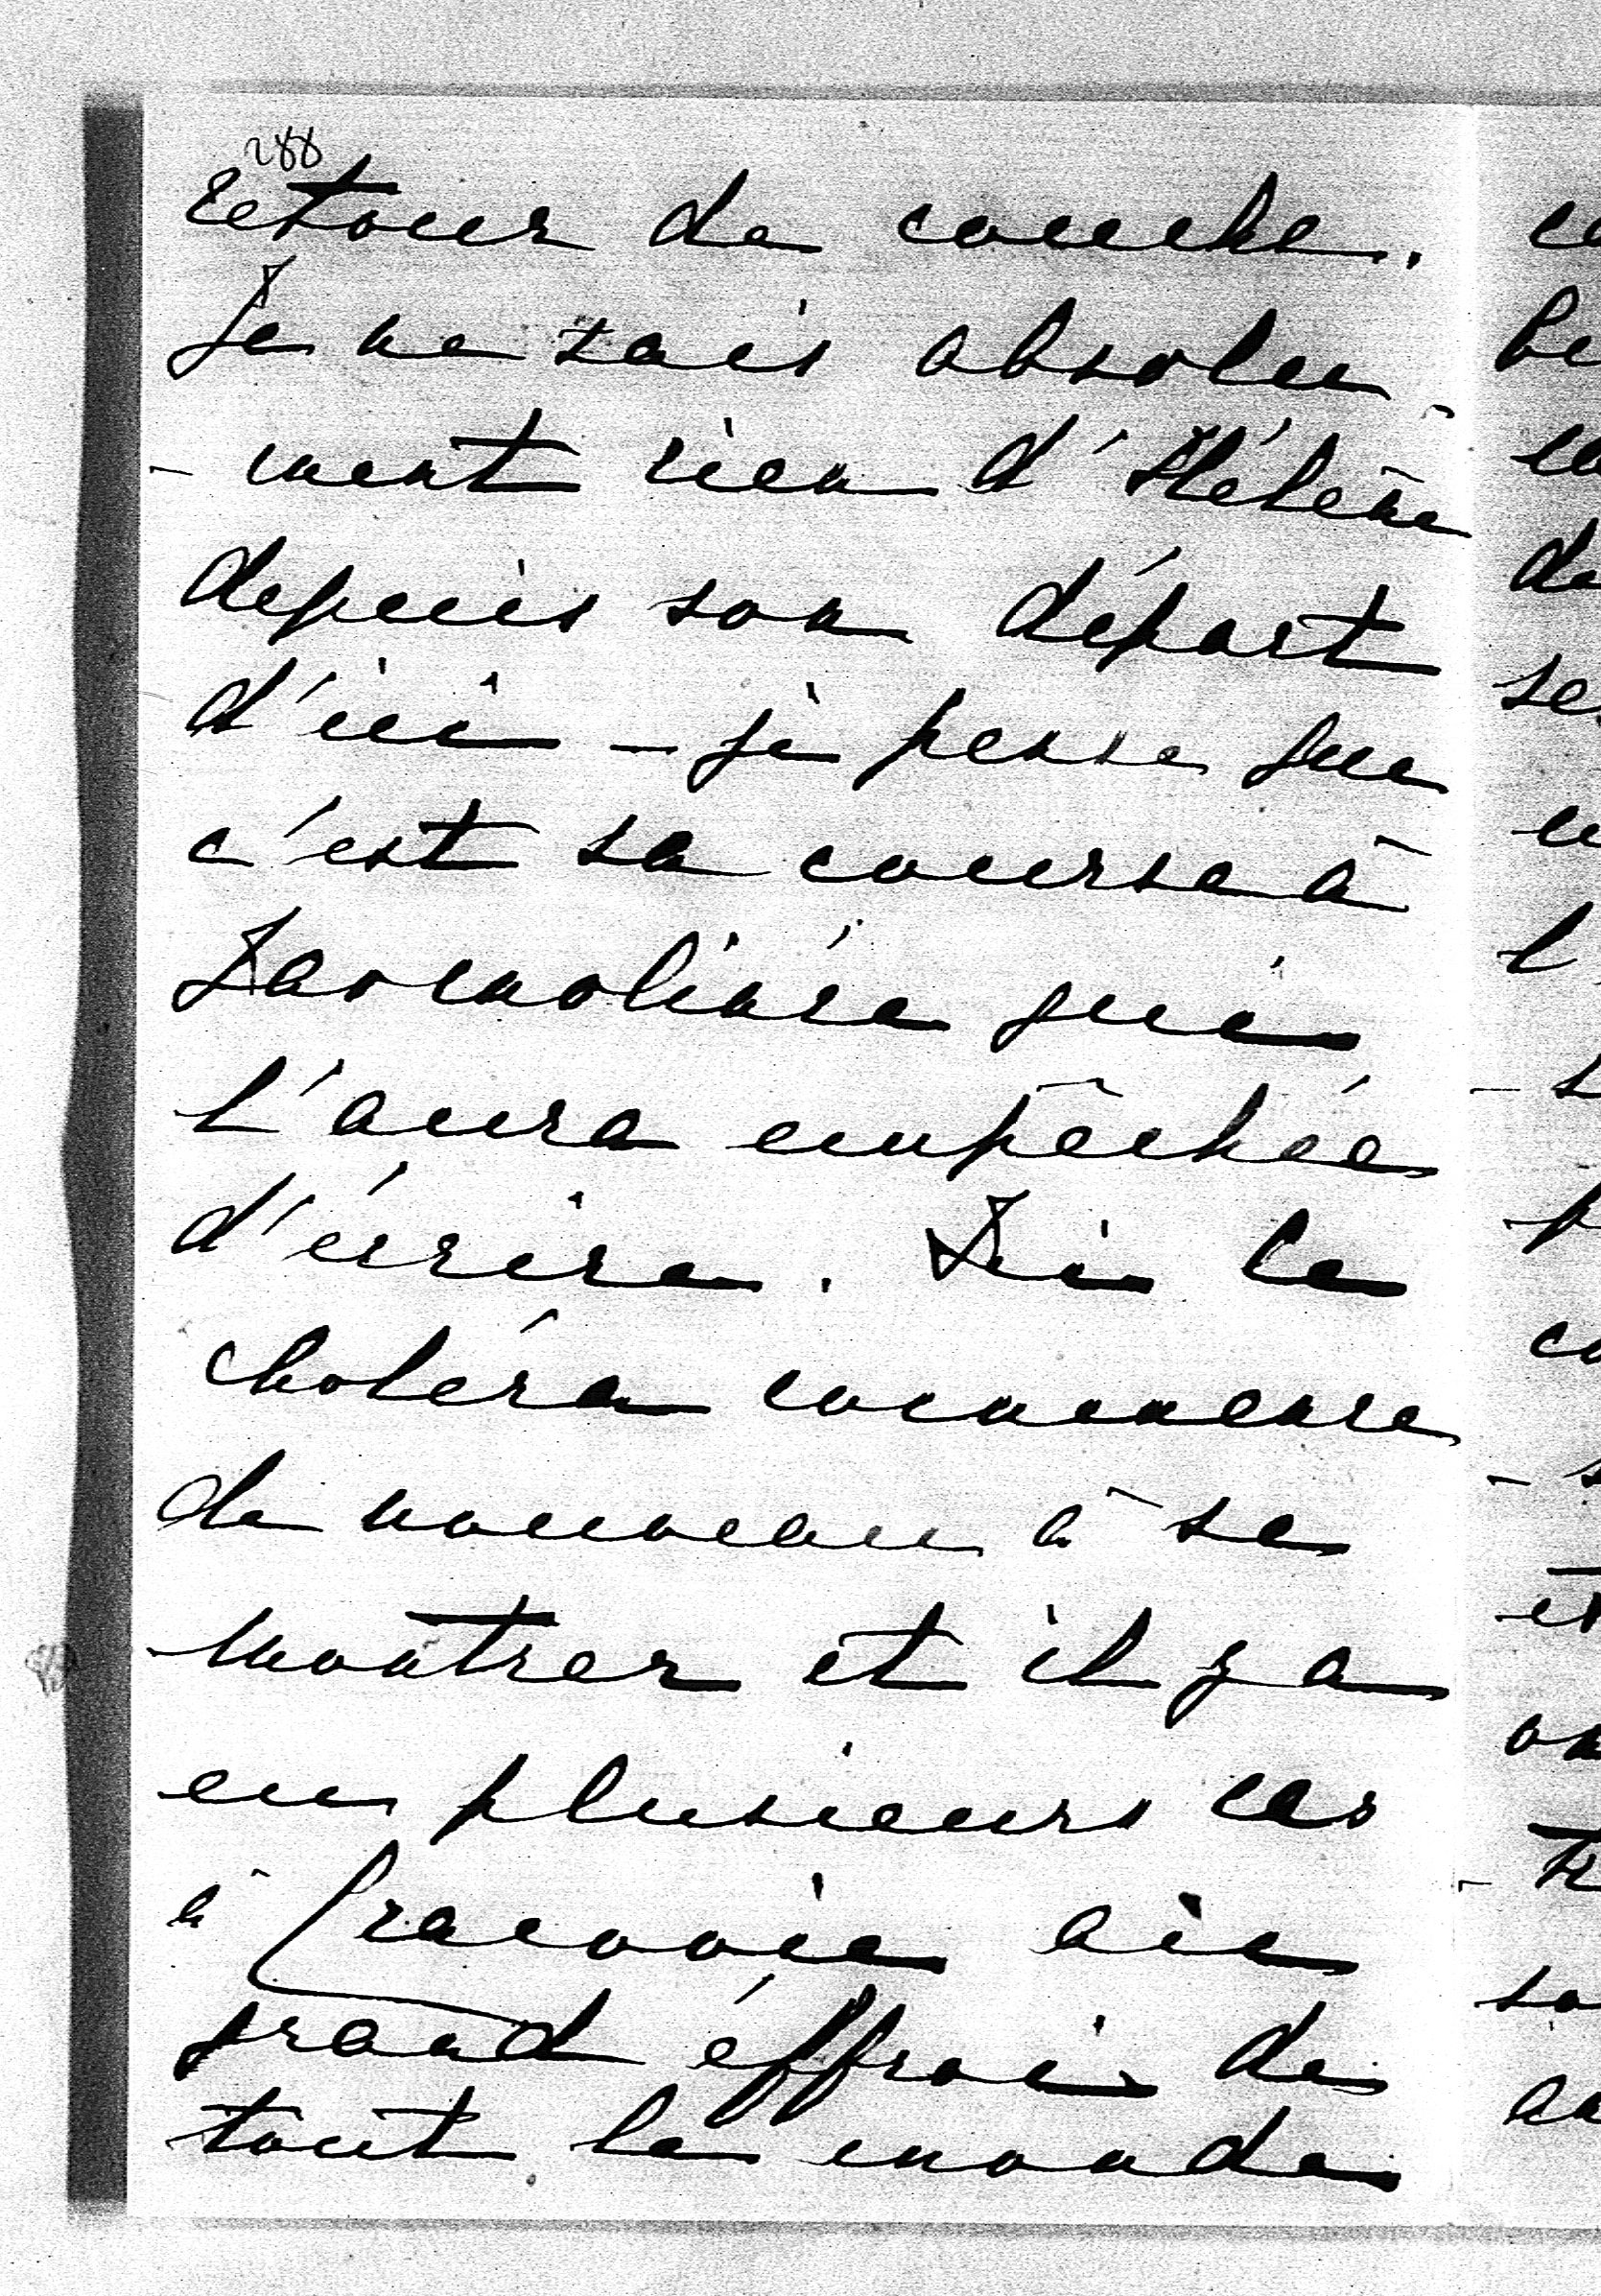 288
retour de couche.
Je ne sais absolu-
-ment rien d'Hélène
depuis son départ
d'ici – je pense que
c'est sa course à
qui
l'aura empêchée
d'écrire. Ici le
choléra commence
de nouveau à se
montrer et il y a
eu plusieurs cas
à Cracovie au
grand éffroi de
tout le monde